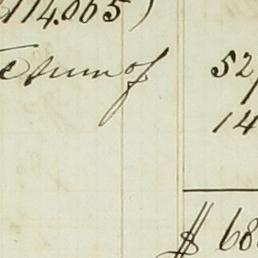 114.065)
sum of 52
14
$ 68